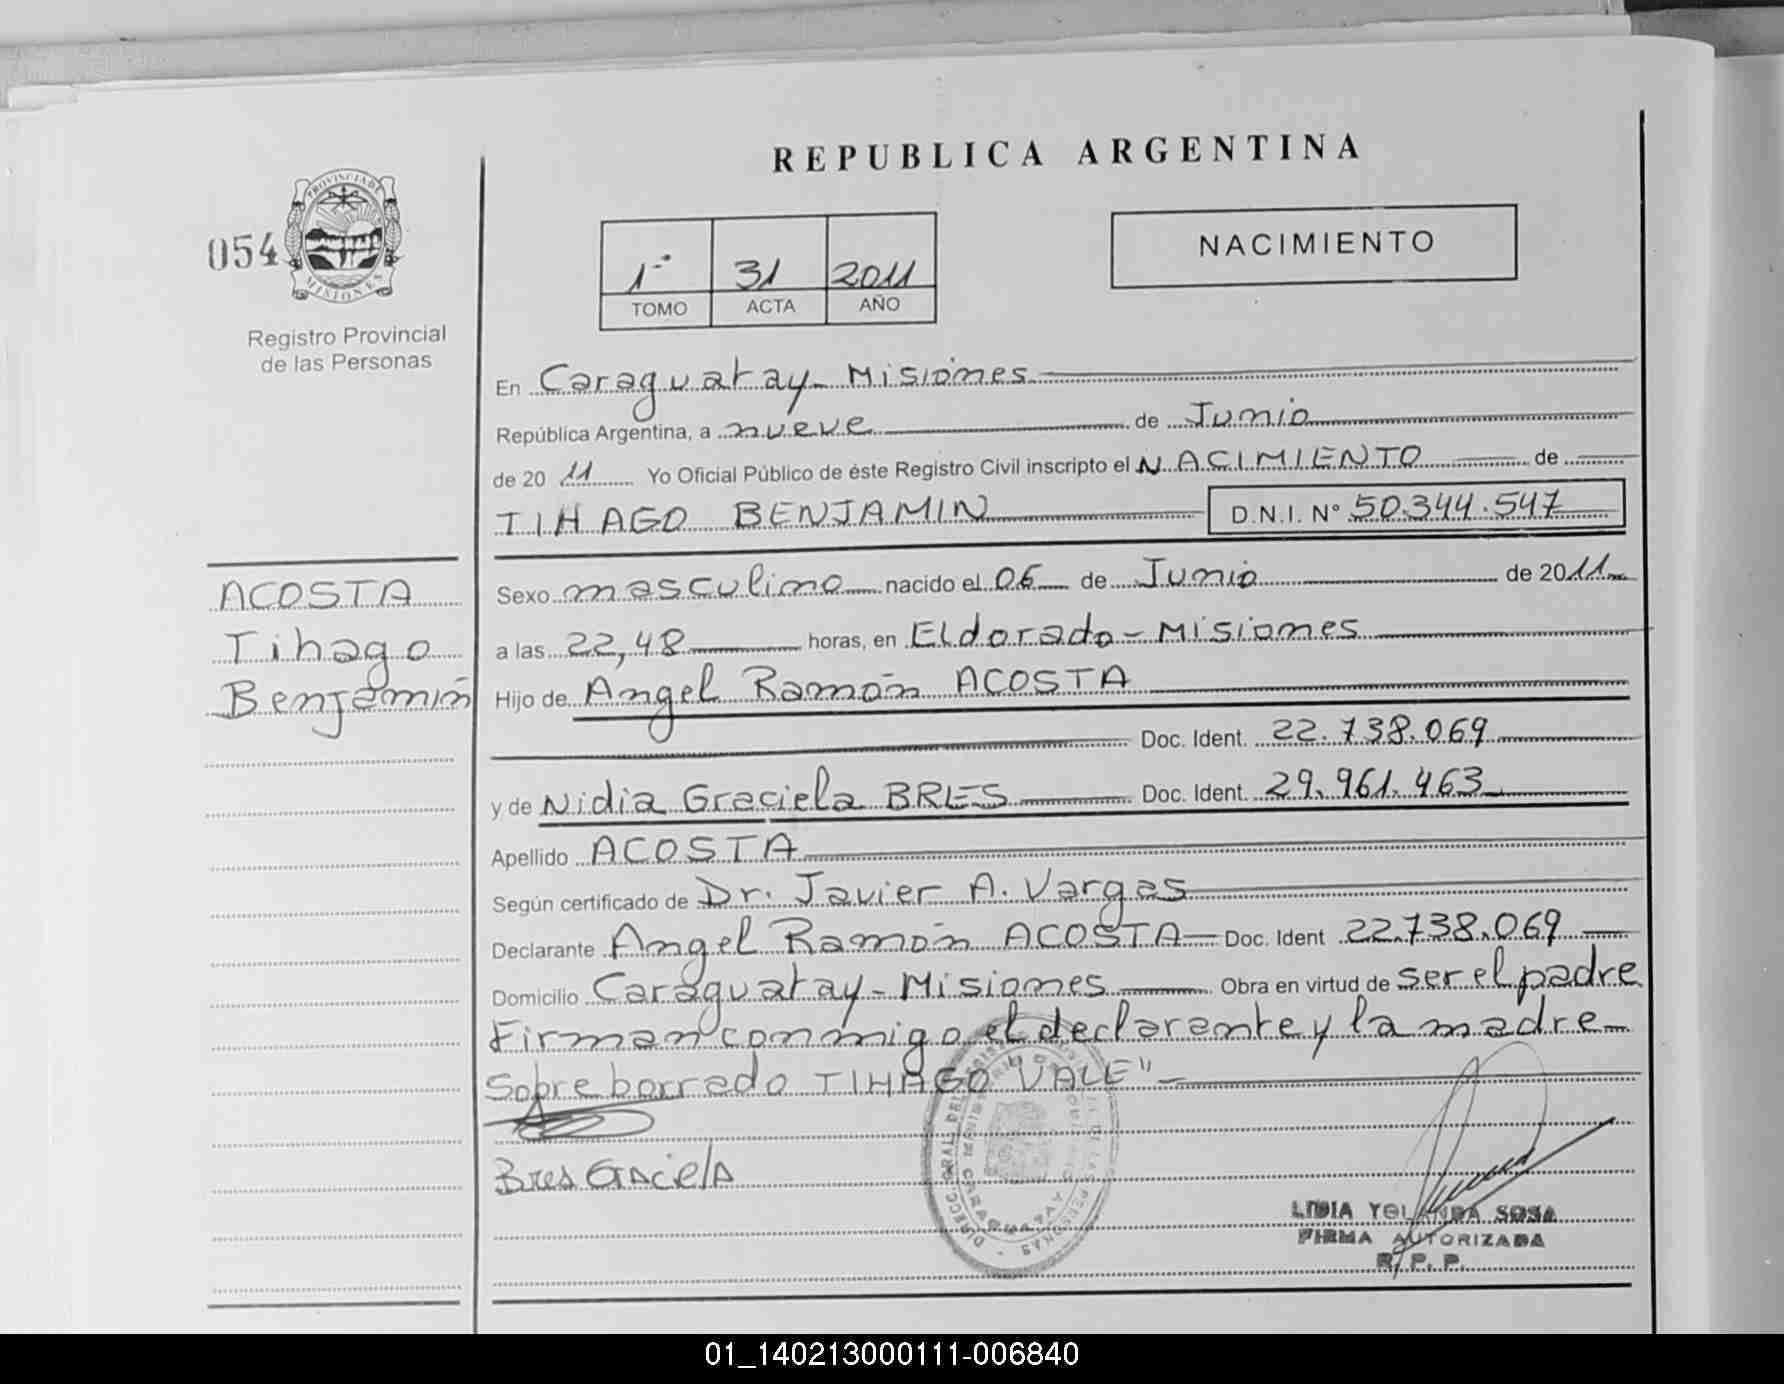 REPUBLICA ARGENTINA
054
PROVINCIA DE
MISIONES
Registro Provincial
de las Personas
1º 31 2011
TOMO ACTA AÑO
NACIMIENTO
En Caraguatay - Misiones
República Argentina, a nueve de Junio
de 20 11 Yo Oficial Público de éste Registro Civil inscripto el NACIMIENTO de
TIHAGO BENJAMIN D.N.I. Nº 50.344.547
ACOSTA
Tihago
Benjamín
Sexo masculino nacido el 06 de Junio de 2011
a las 22,48 horas, en Eldorado - Misiones
Hijo de Angel Ramón ACOSTA
Doc. Ident. 22.738.069
y de Nidia Graciela BRES Doc. Ident. 29.961.463
Apellido ACOSTA
Según certificado de Dr. Javier A. Vargas
Declarante Angel Ramón ACOSTA Doc. Ident 22.738.069
Domicilio Caraguatay - Misiones Obra en virtud de ser el padre
Firman conmigo el declarante y la madre
Sobre borrado TIHAGO "VALE"
Bres Graciela
LIDIA YOLANDA SOSA
FIRMA AUTORIZADA
R. P. P.
01_140213000111-006840